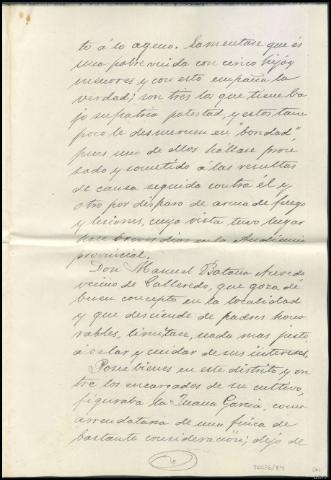 to á lo ageno. Lamentase que és
una pobre viuda con cinco hijos
menores, y con esto empaña la
verdad; son tres los que tiene ba
jo su patria potestad, y estos tam
poco le desmerecen en "bondad"
pues uno de ellos hállase proce
sado y sometido á las resultas
de causa seguida contra él y
otro por disparo de arma de fuego
y lesiones, cuya vista tuvo lugar
hace breves dias en la Audiencia
provincial.
Don Manuel Acevedo
vecino de que goza de
buen concepto en la localidad
y que desciende de padres hono
rables, limítase, nada mas justo
á velar y cuidar de sus intereses.
Posée bienes en este distrito y en
tre los encarnados de su cultivo,
figuraba la Juana Garcia, como
arrendataria de una finca de
bastante consideración; dejó de